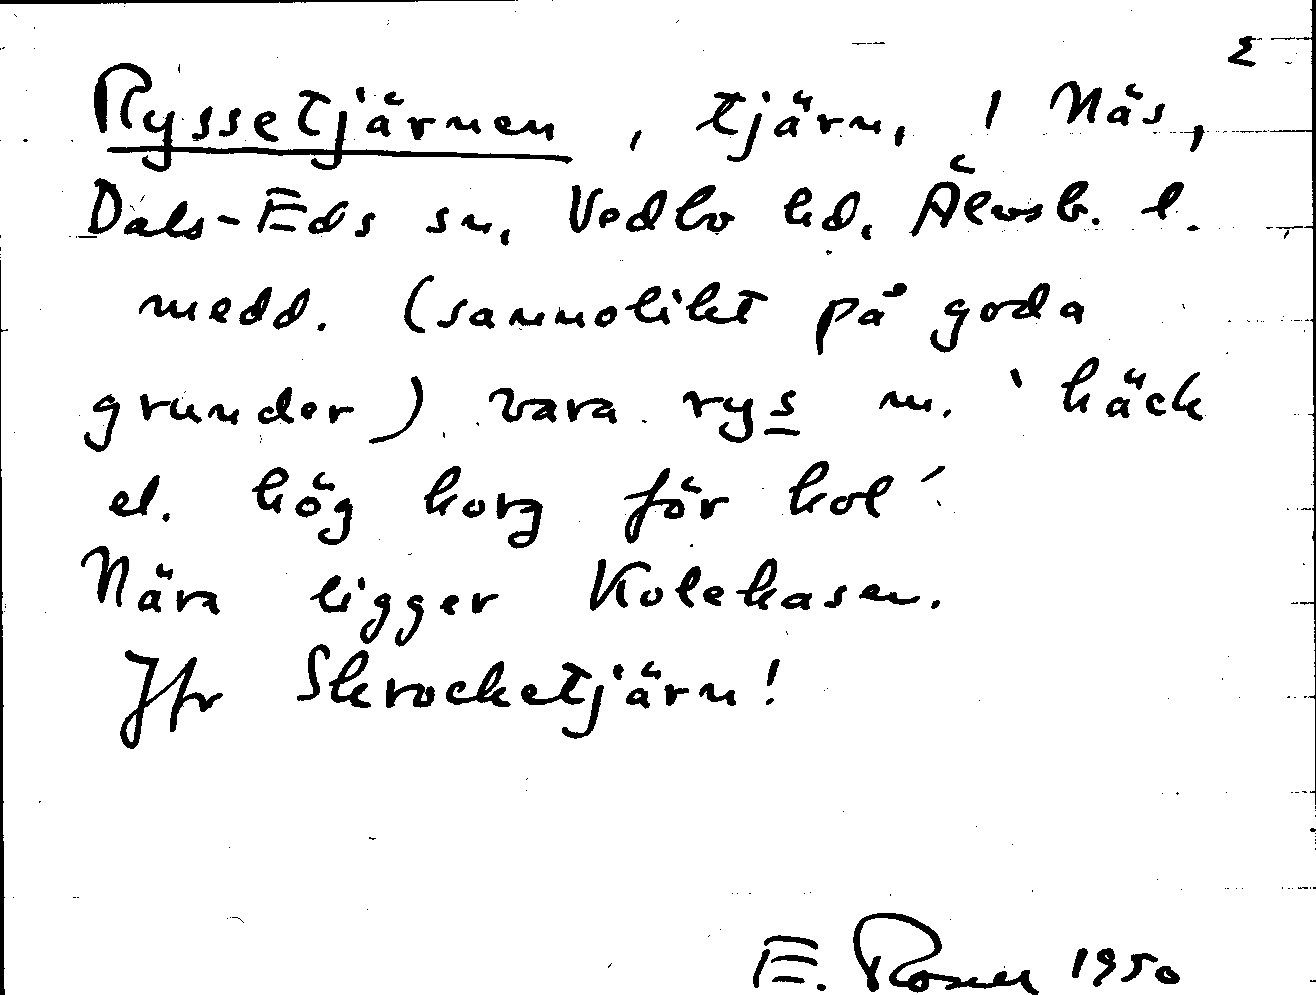 2
Ryssetjärnen, tjärn, 1 Näs,
Dals-Eds sn, Vedbo hd, Älvsb. l.
medd. (sannolikt på goda
grunder) vara rys m. 'häck
el. hög korg för kol'
Nära ligger Kolekasen.
Jfr Skrocketjärn!
E. Rosell 1950